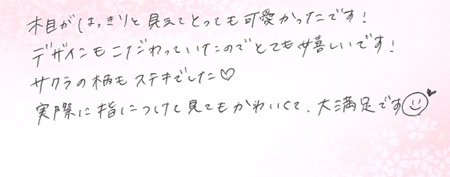 木目がはっきりと見えてとっても可愛かったです！
デザインもこだわっていたのでとても嬉しいです！
サクラの柄もステキでした♡
実際に指につけて見てもかわいくて、大満足です☺